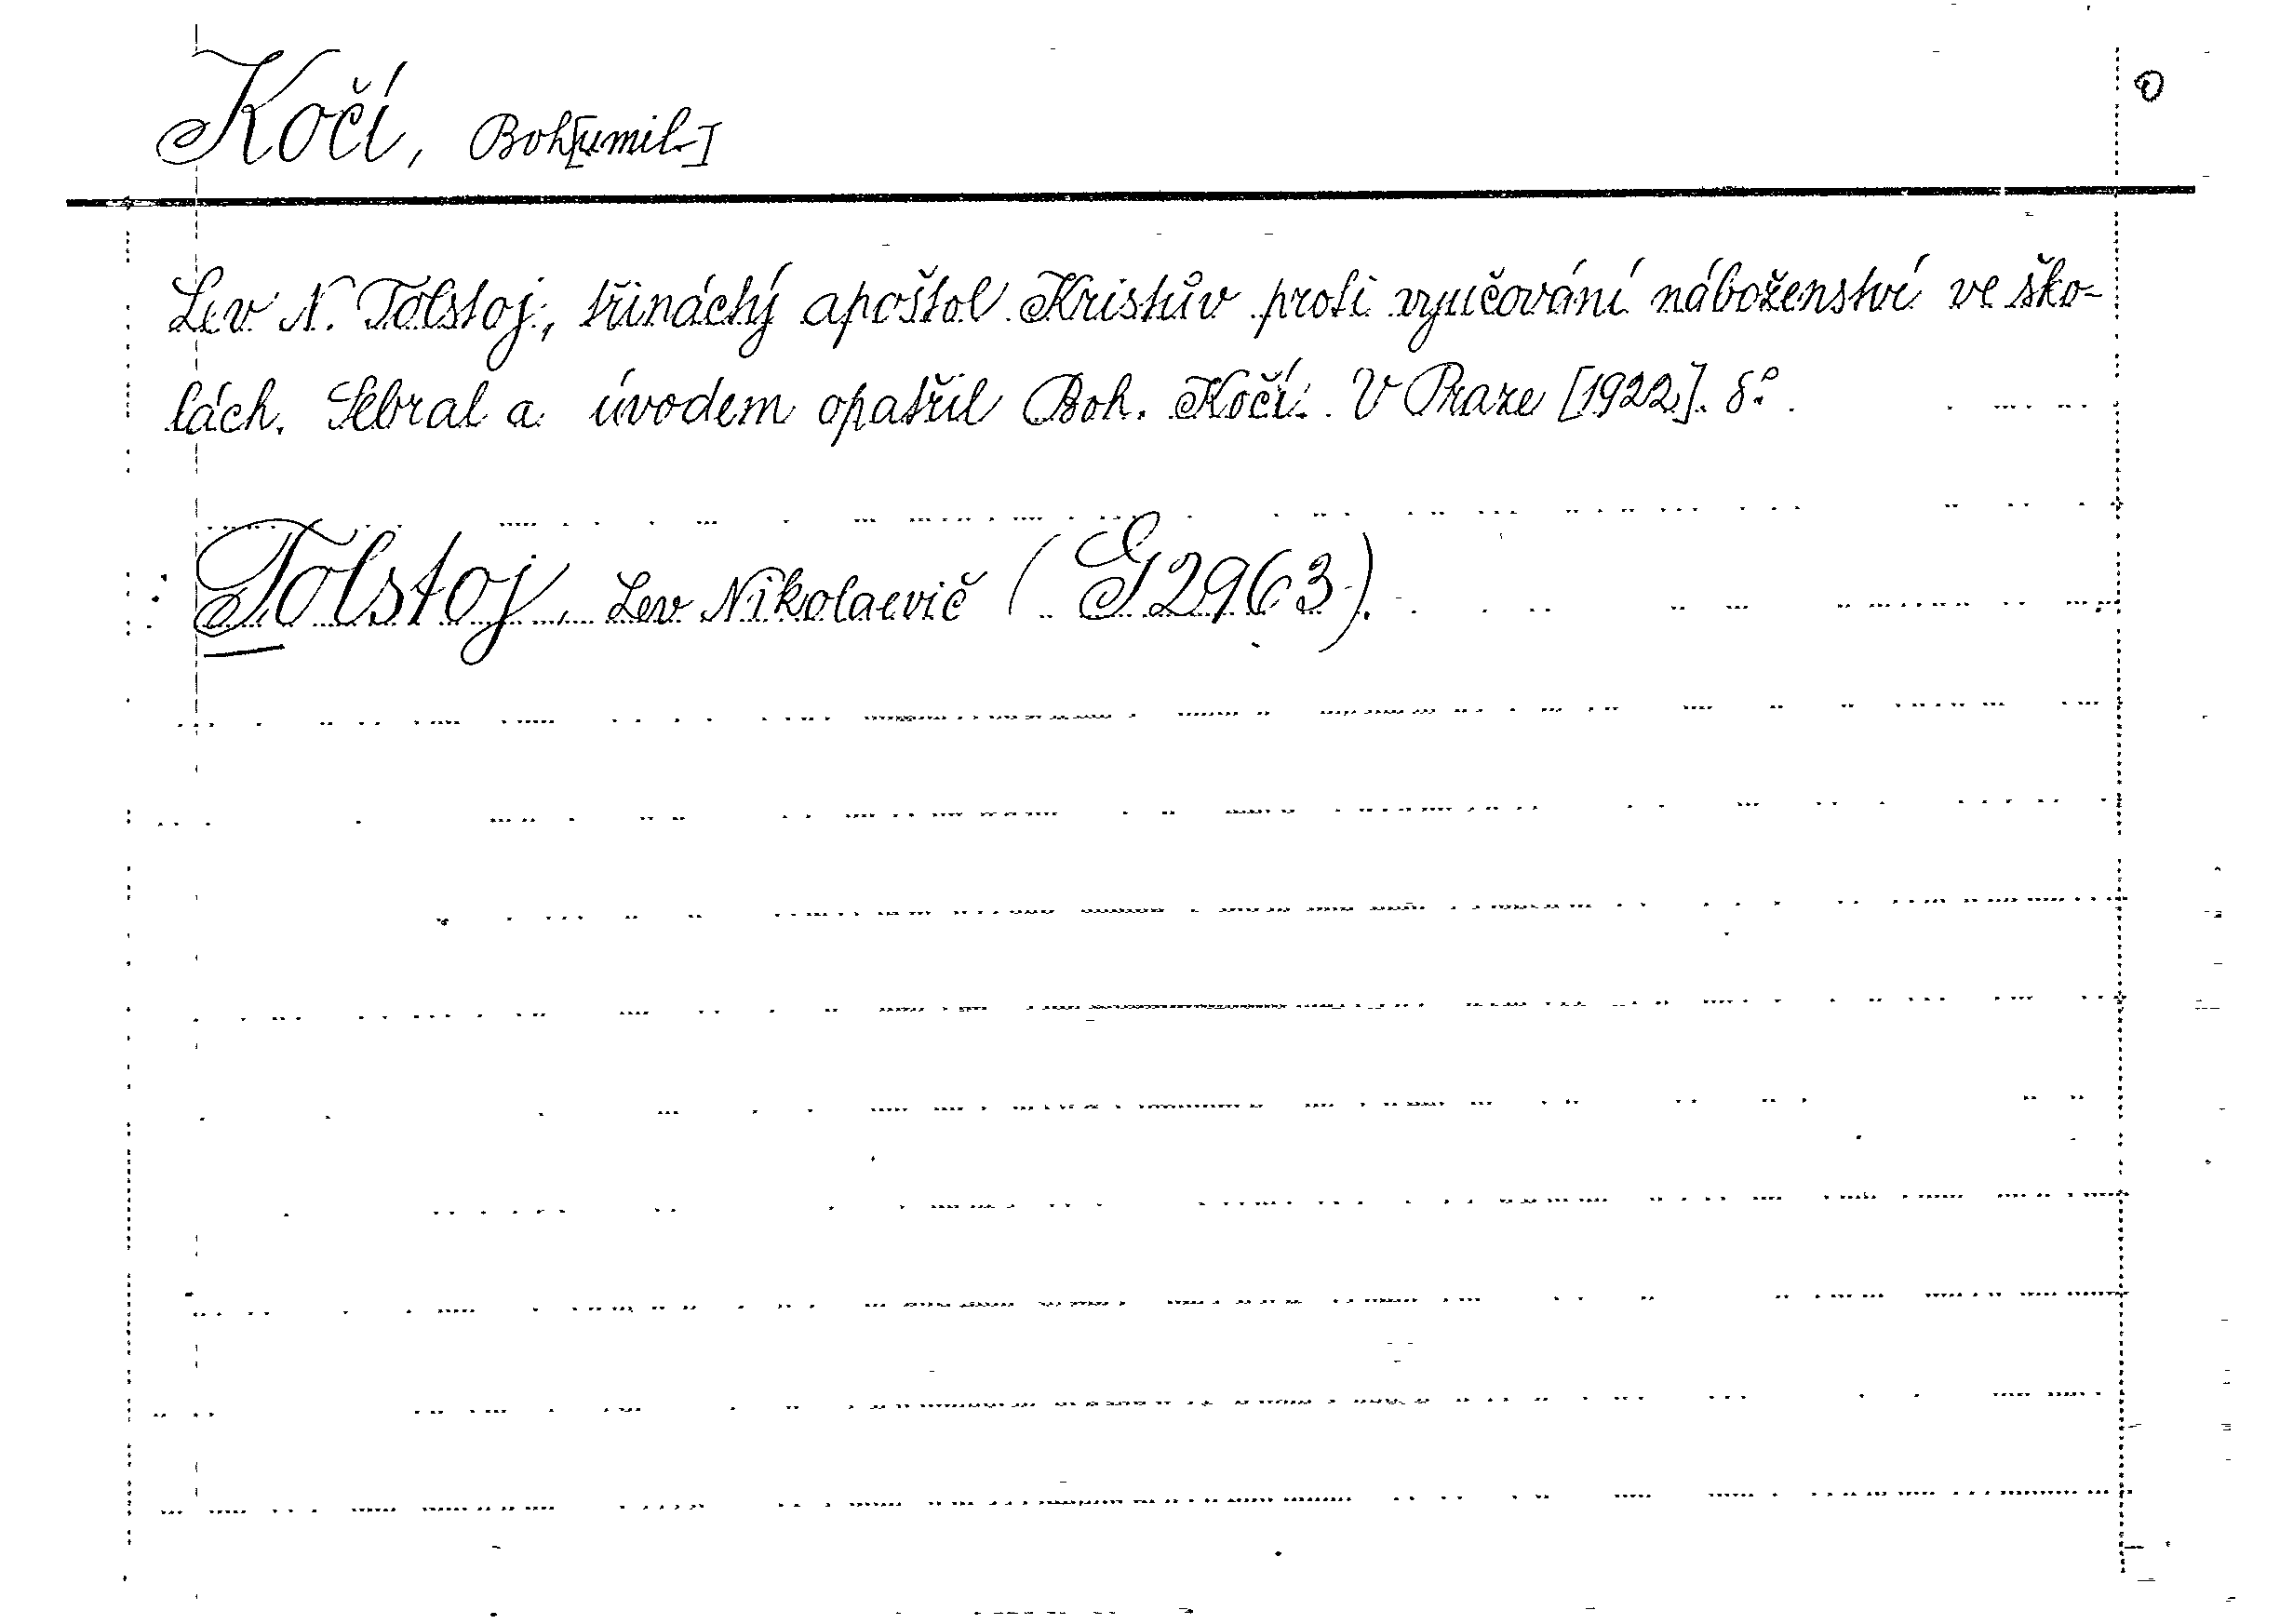 Kočí, Boh[umil]
Lev N. Tolstoj, třináctý apoštol Kristův proti vyučování náboženství ve ško-
lách. Sebral a úvodem opatřil Boh. Kočí. V Praze [1922]. 8°.
: Tolstoj, Lev Nikolaevič (G 2963).